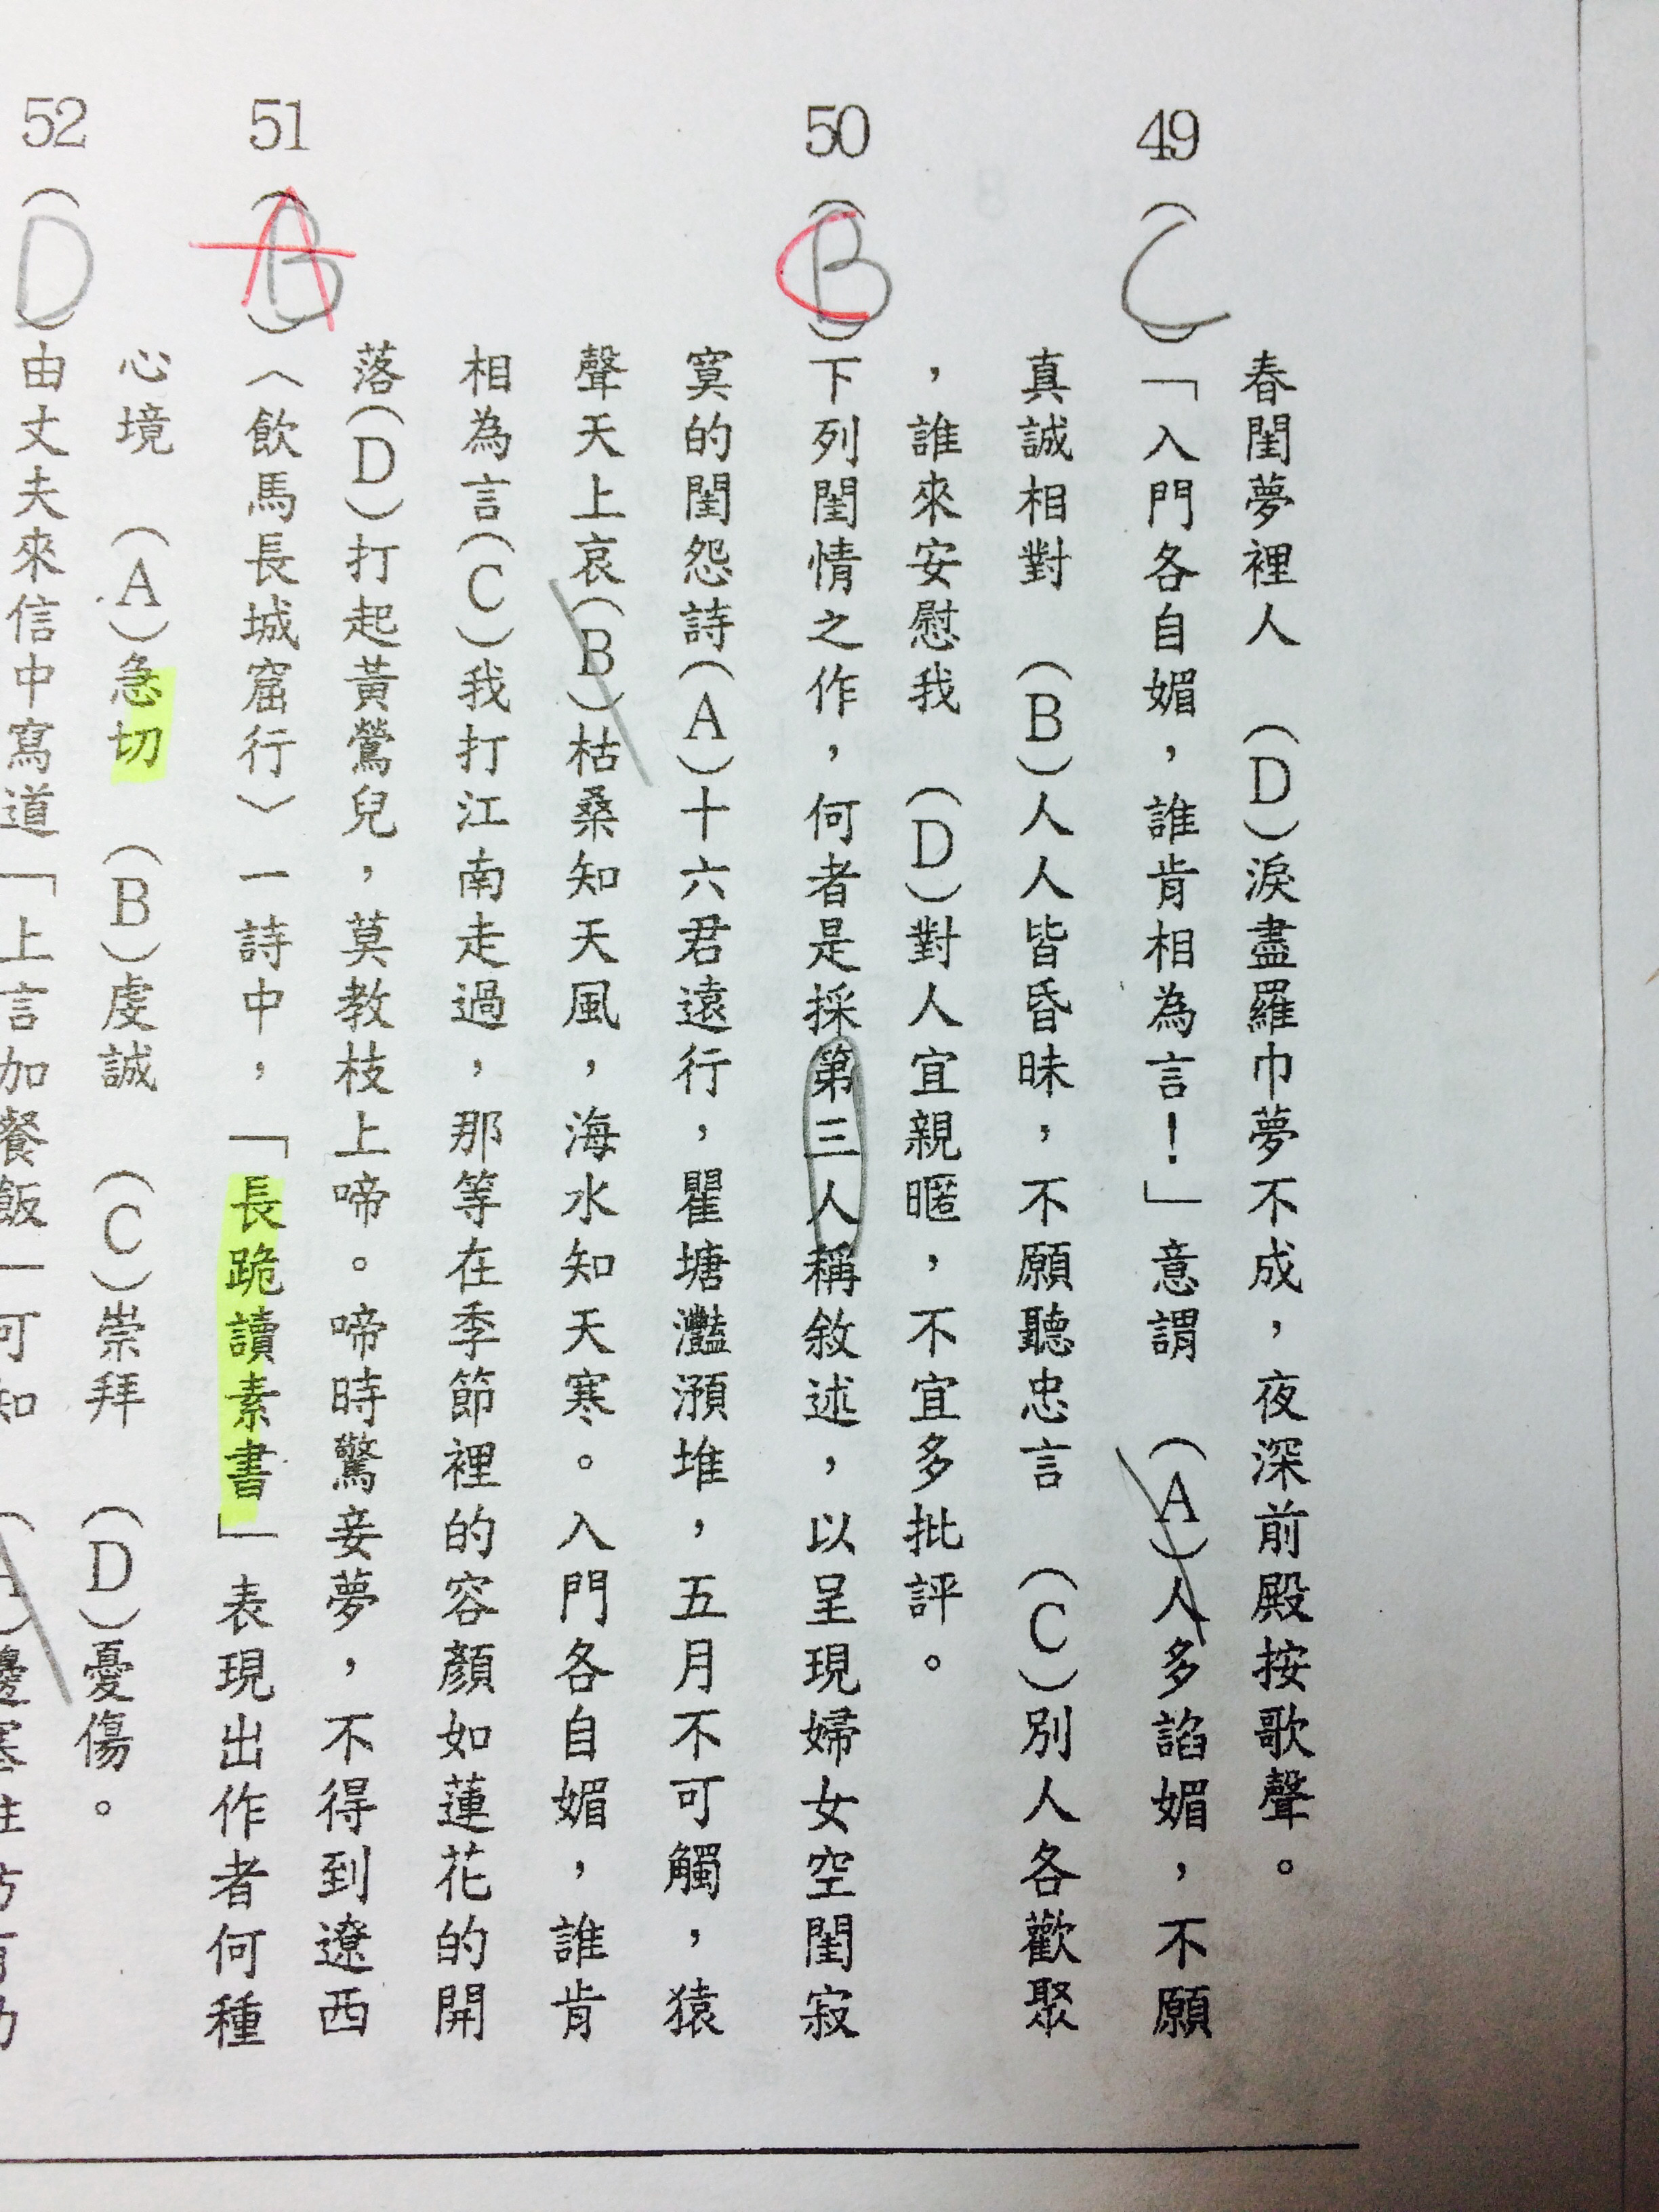 春閨夢裡人　(D)淚盡羅巾夢不成，夜深前殿按歌聲。
49 (C)「入門各自媚，誰肯相為言！」意謂　(A)人多諂媚，不願
真誠相對　(B)人人皆昏昧，不願聽忠言　(C)別人各歡聚
，誰來安慰我　(D)對人宜親暱，不宜多批評。
50 (B C)下列閨情之作，何者是採第三人稱敘述，以呈現婦女空閨寂
寞的閨怨詩(A)十六君遠行，瞿塘灩澦堆，五月不可觸，猿
聲天上哀(B)枯桑知天風，海水知天寒。入門各自媚，誰肯
相為言(C)我打江南走過，那等在季節裡的容顏如蓮花的開
落(D)打起黃鶯兒，莫教枝上啼。啼時驚妾夢，不得到遼西
51 (B A)〈飲馬長城窟行〉一詩中，「長跪讀素書」表現出作者何種
心境　(A)急切　(B)虔誠　(C)崇拜　(D)憂傷。
52 (D)由丈夫來信中寫道「上言加餐飯」可知　(A)邊塞